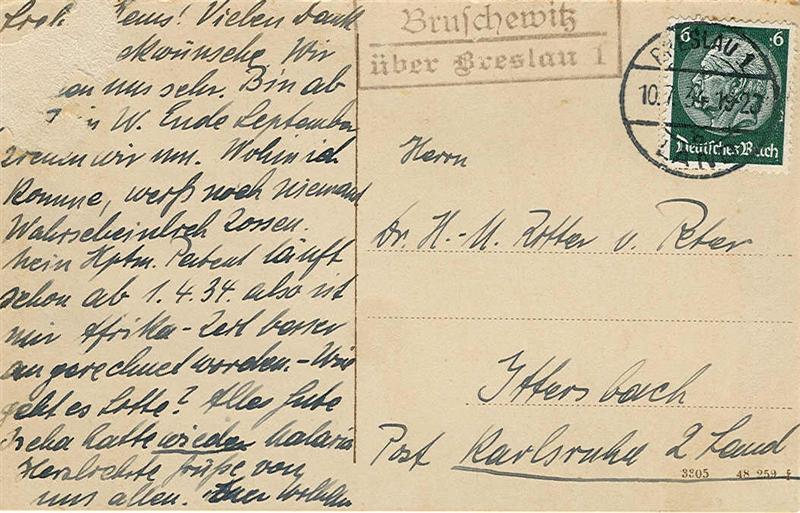 Vielen Dank
Wir
uns sehr. Bin ab
W. Ende September
wir um. Wohin ich
komme, weiß noch niemand
Wahrscheinlich Zossen.
Mein Hptm. Patent läuft
schon ab 1.4.34. also ist
mir Afrika-Zeit besser
angerechnet worden. - Wie
geht es Lotte? Alles Gute
hatte wieder Malaria
Herzlichste Grüße von
uns allen.
Bruschewitz
über Breslau 1
6 6
BRESLAU 1
10.7.34.19-20
Deutsches Reich
Herrn
Dr. H.-U. Zotter v. Peter
Ittersbach
Post Karlsruhe 2 Land
3305 48 259 f